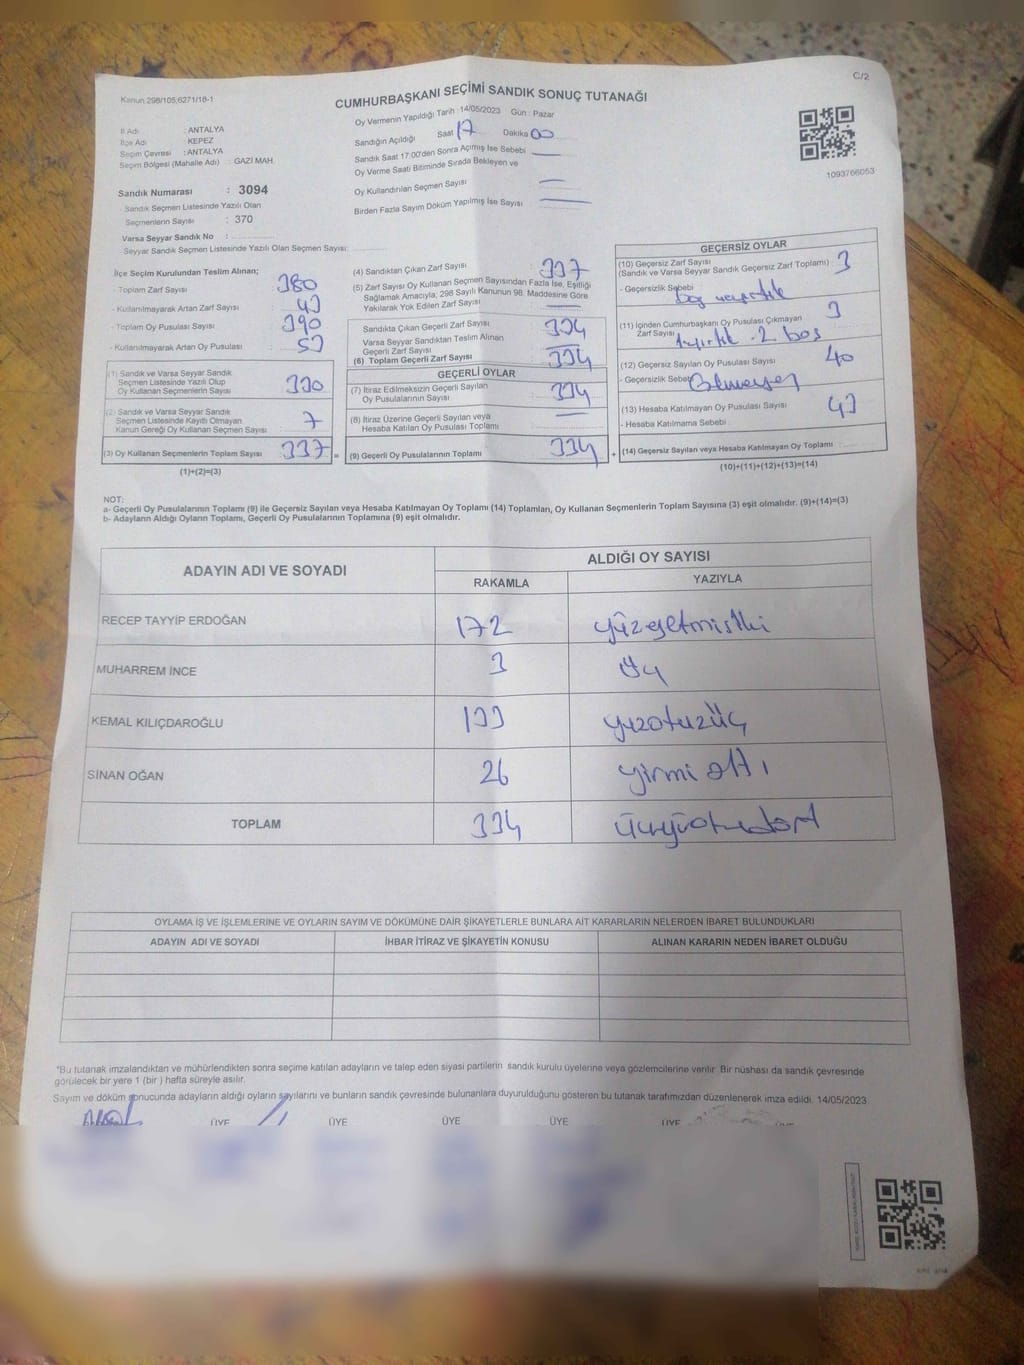 Kanun 298/105,6271/18-1
C/2
CUMHURBAŞKANI SEÇİMİ SANDIK SONUÇ TUTANAĞI
İl Adı : ANTALYA
İlçe Adı : KEPEZ
Seçim Çevresi : ANTALYA
Seçim Bölgesi (Mahalle Adı) : GAZİ MAH.
Sandık Numarası : 3094
Sandık Seçmen Listesinde Yazılı Olan
Seçmenlerin Sayısı : 370
Varsa Seyyar Sandık No :
Seyyar Sandık Seçmen Listesinde Yazılı Olan Seçmen Sayısı:
Oy Vermenin Yapıldığı Tarih : 14/05/2023 Gün : Pazar
Sandığın Açıldığı Saat 17 Dakika 00
Sandık Saat 17.00'den Sonra Açılmış İse Sebebi —
Oy Verme Saati Bitiminde Sırada Bekleyen ve
Oy Kullandırılan Seçmen Sayısı —
Birden Fazla Sayım Döküm Yapılmış İse Sayısı —
1093766053
İlçe Seçim Kurulundan Teslim Alınan;
- Toplam Zarf Sayısı 380
- Kullanılmayarak Artan Zarf Sayısı : 43
- Toplam Oy Pusulası Sayısı 390
- Kullanılmayarak Artan Oy Pusulası 53
(1) Sandık ve Varsa Seyyar Sandık
Seçmen Listesinde Yazılı Olup
Oy Kullanan Seçmenlerin Sayısı 330
(2) Sandık ve Varsa Seyyar Sandık
Seçmen Listesinde Kayıtlı Olmayan
Kanun Gereği Oy Kullanan Seçmen Sayısı 7
(3) Oy Kullanan Seçmenlerin Toplam Sayısı 337
(1)+(2)=(3)
(4) Sandıktan Çıkan Zarf Sayısı : 337
(5) Zarf Sayısı Oy Kullanan Seçmen Sayısından Fazla İse, Eşitliği
Sağlamak Amacıyla; 298 Sayılı Kanunun 98. Maddesine Göre
Yakılarak Yok Edilen Zarf Sayısı —
Sandıkta Çıkan Geçerli Zarf Sayısı 334
Varsa Seyyar Sandıktan Teslim Alınan
Geçerli Zarf Sayısı —
(6) Toplam Geçerli Zarf Sayısı 334
GEÇERLİ OYLAR
(7) İtiraz Edilmeksizin Geçerli Sayılan
Oy Pusulalarının Sayısı 334
(8) İtiraz Üzerine Geçerli Sayılan veya
Hesaba Katılan Oy Pusulası Toplamı —
(9) Geçerli Oy Pusulalarının Toplamı 334
GEÇERSİZ OYLAR
(10) Geçersiz Zarf Sayısı
(Sandık ve Varsa Seyyar Sandık Geçersiz Zarf Toplamı) : 3
- Geçersizlik Sebebi boş ve yırtık
(11) İçinden Cumhurbaşkanı Oy Pusulası Çıkmayan
Zarf Sayısı 3
1 yırtık - 2 boş
(12) Geçersiz Sayılan Oy Pusulası Sayısı 40
- Geçersizlik Sebebi
(13) Hesaba Katılmayan Oy Pusulası Sayısı 43
- Hesaba Katılmama Sebebi
(14) Geçersiz Sayılan veya Hesaba Katılmayan Oy Toplamı
(10)+(11)+(12)+(13)=(14)
NOT:
a- Geçerli Oy Pusulalarının Toplamı (9) ile Geçersiz Sayılan veya Hesaba Katılmayan Oy Toplamı (14) Toplamları, Oy Kullanan Seçmenlerin Toplam Sayısına (3) eşit olmalıdır. (9)+(14)=(3)
b- Adayların Aldığı Oyların Toplamı, Geçerli Oy Pusulalarının Toplamına (9) eşit olmalıdır.
ADAYIN ADI VE SOYADI ALDIĞI OY SAYISI
RAKAMLA YAZIYLA
RECEP TAYYİP ERDOĞAN 172 yüzyetmişiki
MUHARREM İNCE 3 üç
KEMAL KILIÇDAROĞLU 133 yüzotuzüç
SİNAN OĞAN 26 yirmi altı
TOPLAM 334 üçyüzotuzdört
OYLAMA İŞ VE İŞLEMLERİNE VE OYLARIN SAYIM VE DÖKÜMÜNE DAİR ŞİKAYETLERLE BUNLARA AİT KARARLARIN NELERDEN İBARET BULUNDUKLARI
ADAYIN ADI VE SOYADI İHBAR İTİRAZ VE ŞİKAYETİN KONUSU ALINAN KARARIN NEDEN İBARET OLDUĞU
*Bu tutanak imzalandıktan ve mühürlendikten sonra seçime katılan adayların ve talep eden siyasi partilerin sandık kurulu üyelerine veya gözlemcilerine verilir. Bir nüshası da sandık çevresinde
görülecek bir yere 1 (bir ) hafta süreyle asılır.
Sayım ve döküm sonucunda adayların aldığı oyların sayılarını ve bunların sandık çevresinde bulunanlara duyurulduğunu gösteren bu tutanak tarafımızdan düzenlenerek imza edildi. 14/05/2023
ÜYE ÜYE ÜYE ÜYE ÜYE